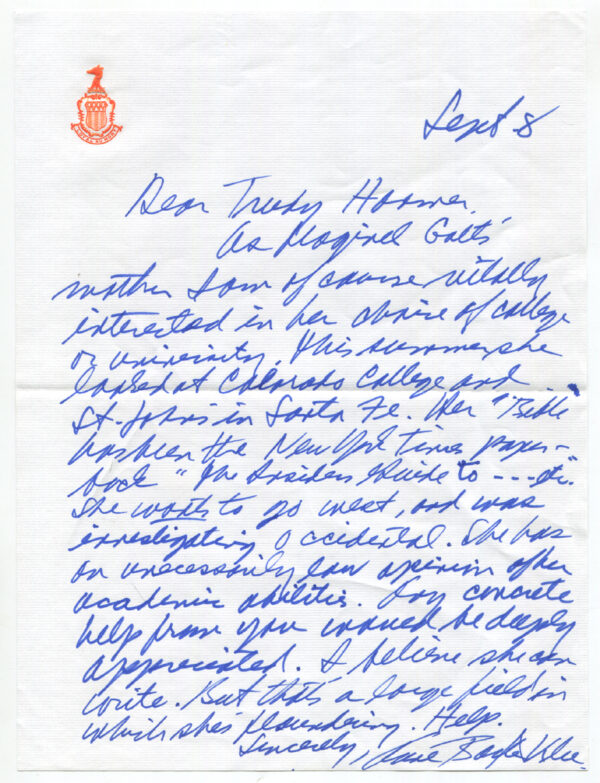 Sept 8
Dear Trudy Hoomer,
As Maginel Galt's
mother I am of course vitally
interested in her choice of college
or university. This summer she
looked at Colorado College and
St. Johns in Santa Fe. Her "Bible
has been the New York Times paper-
back "The Insiders Guide to --- etc."
She wants to go west, and was
investigating Occidental. She has
an unnecessarily low opinion of her
academic abilities. Any concrete
help from you would be deeply
appreciated. I believe she can
write. But that's a large field in
which she's floundering. Help.
Sincerely,